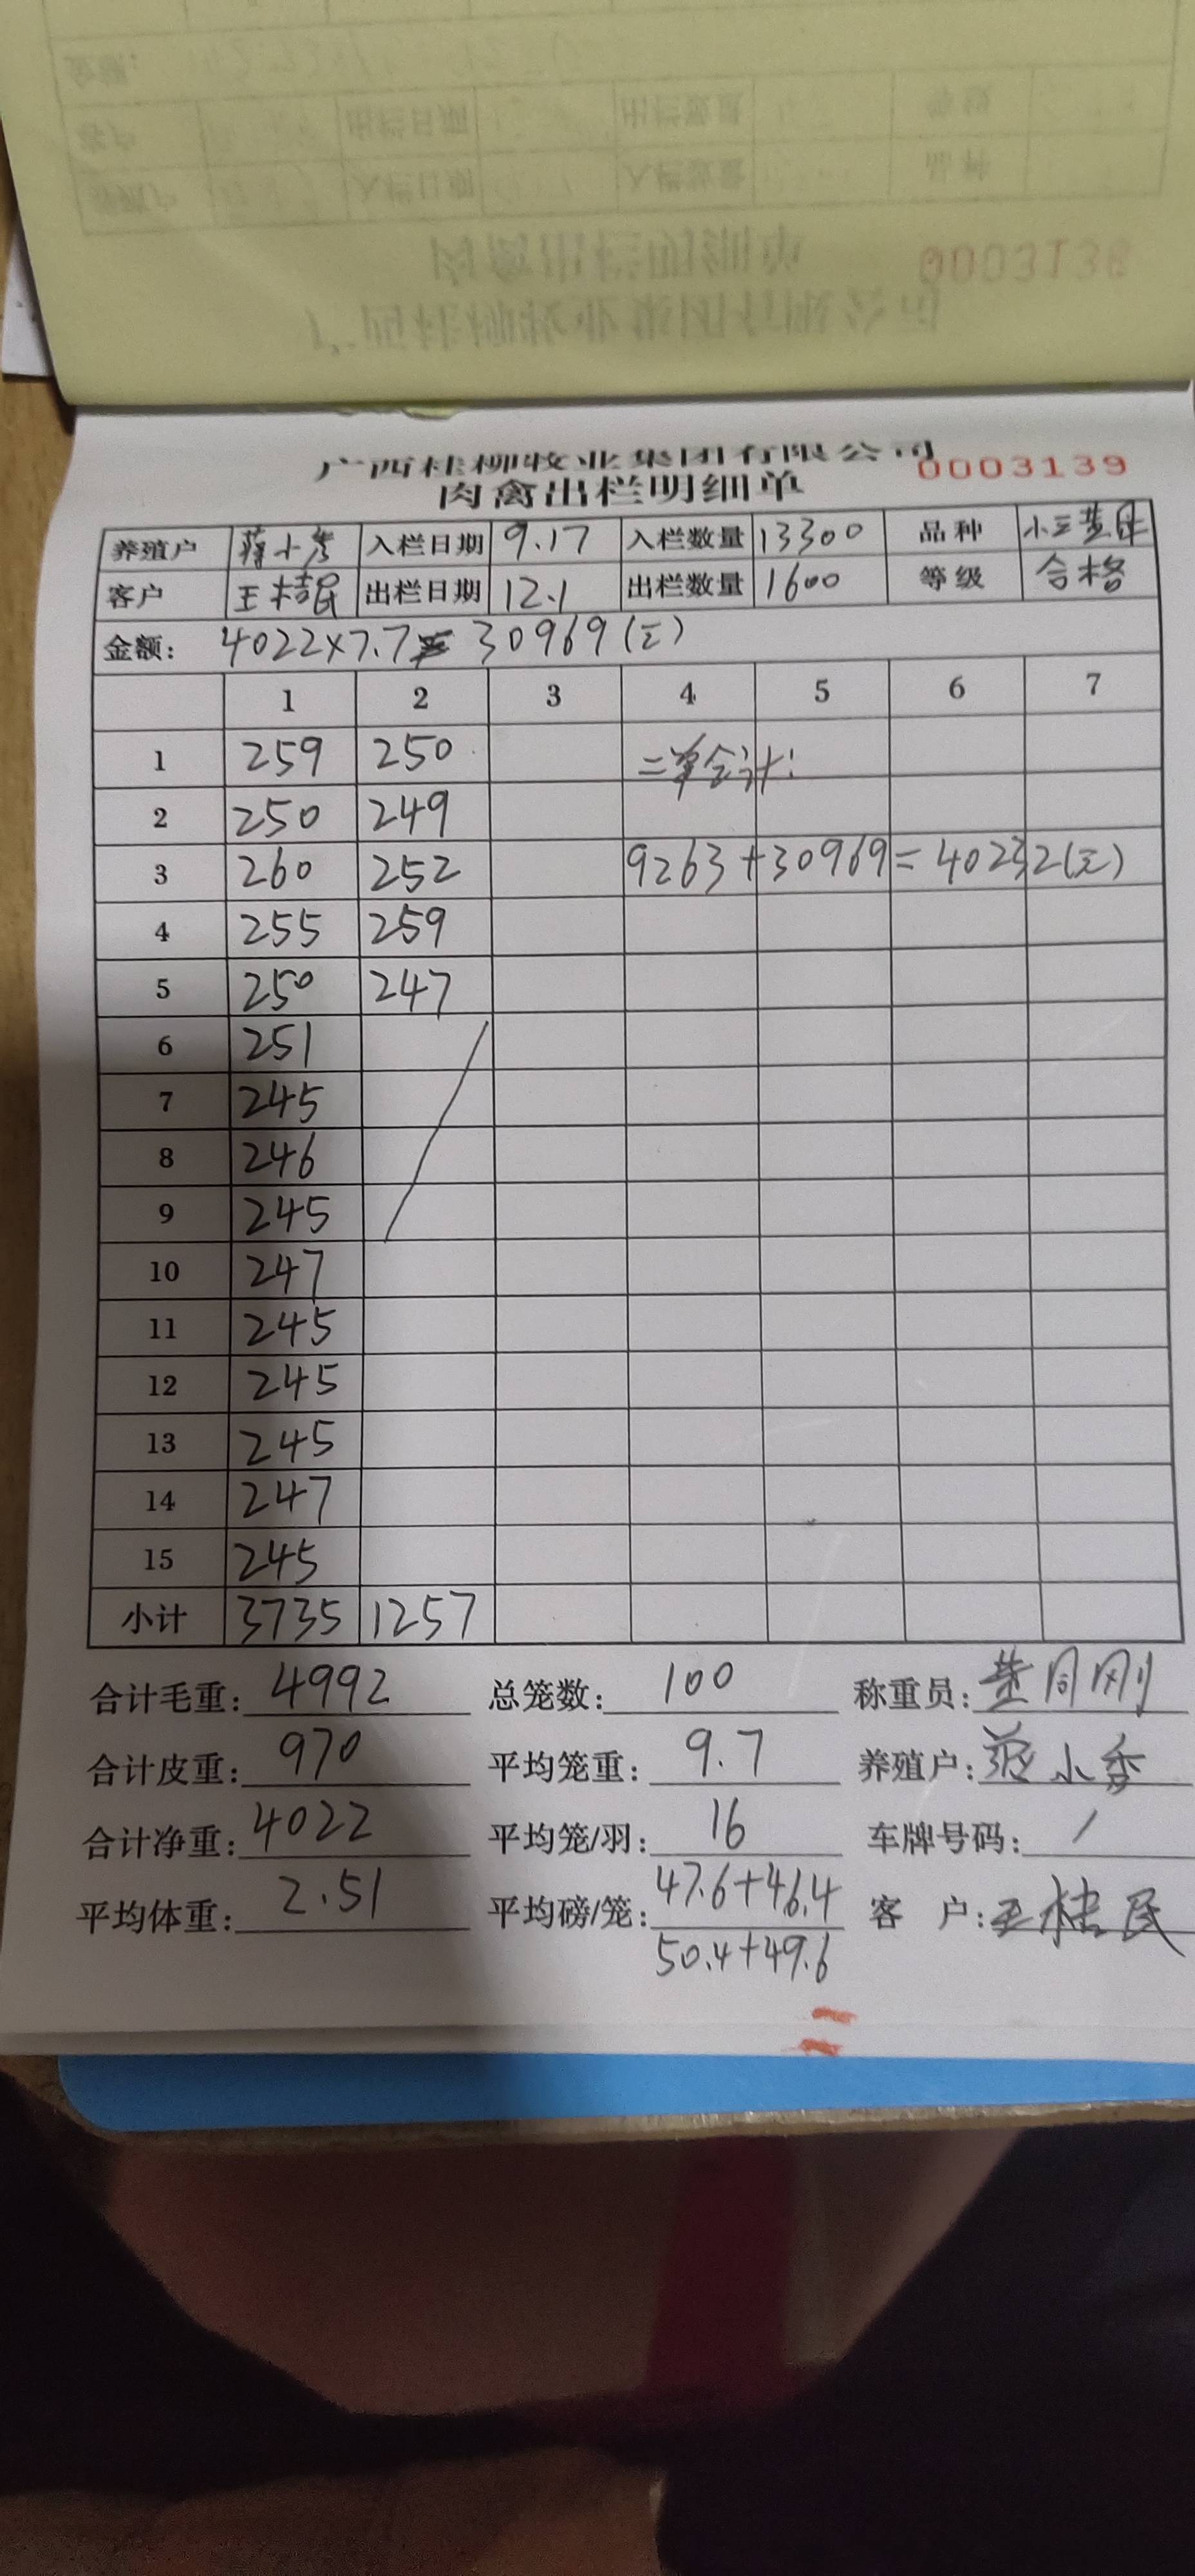 广西桂柳牧业集团有限公司
肉禽出栏明细单 0003139
养殖户 蒋小 入栏日期 9.17 入栏数量 13300 品种
客户 王桔民 出栏日期 12.1 出栏数量 1600 等级 合格
金额: 4022×7.7= 30969(元)
1 2 3 4 5 6 7
1 259 250 二单合计:
2 250 249
3 260 252 9263+30969=40232(元)
4 255 259
5 250 247
6 251
7 245
8 246
9 245
10 247
11 245
12 245
13 245
14 247
15 245
小计 3735 1257
合计毛重: 4992 总笼数: 100 称重员: 黄同刚
合计皮重: 970 平均笼重: 9.7 养殖户: 小香
合计净重: 4022 平均笼/羽: 16 车牌号码: /
平均体重: 2.51 平均磅/笼: 47.6+46.4 客户: 王桔民
50.4+49.6